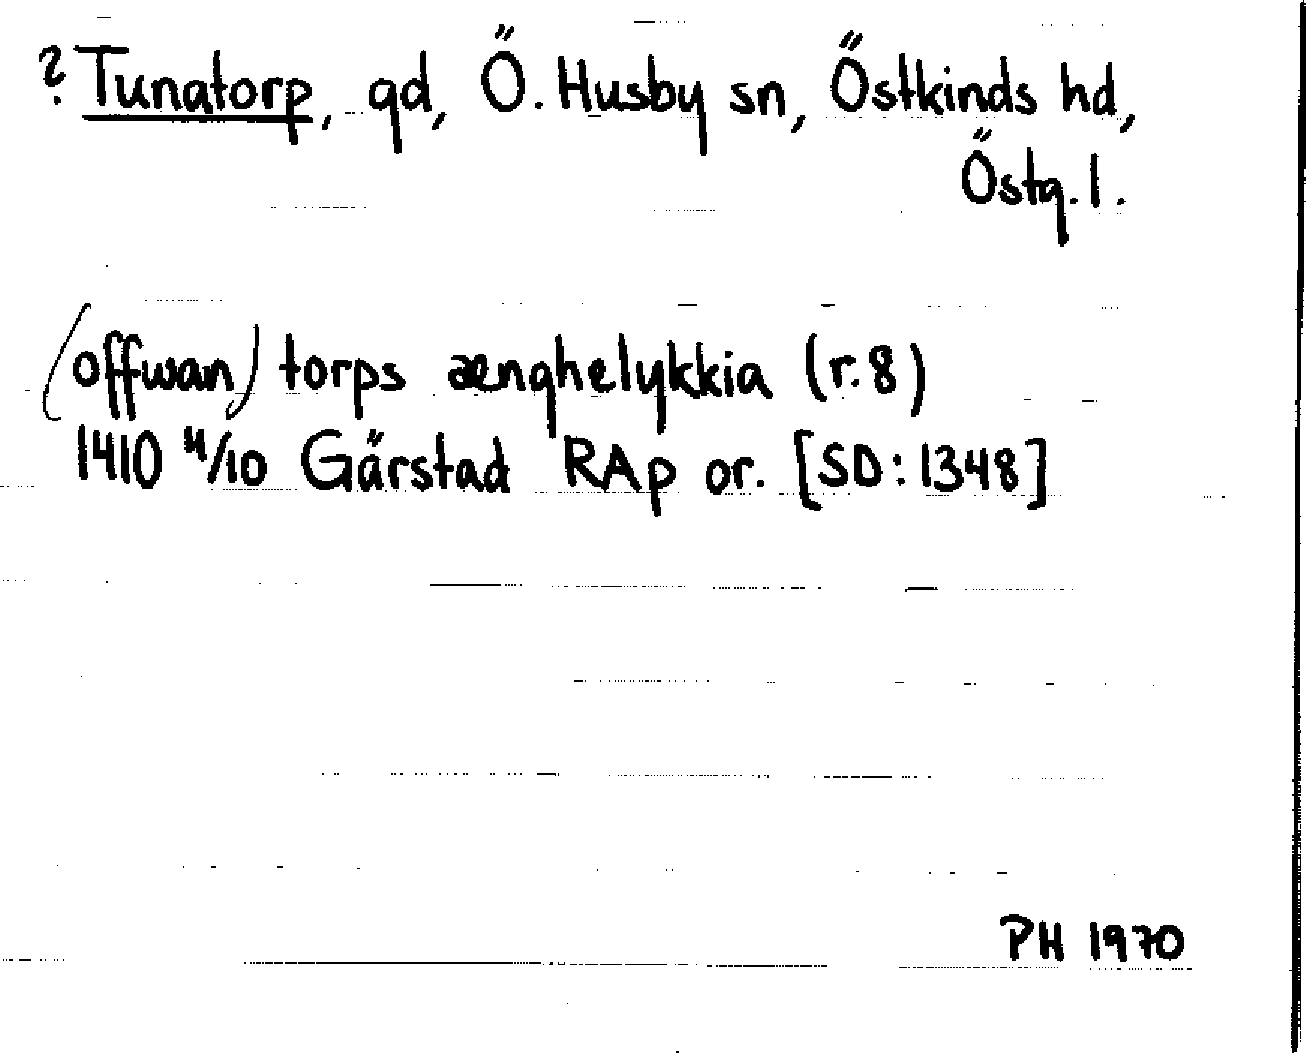 ? Tunatorp, gd, Ö. Husby sn, Östkinds hd,
Östg. l.
(offwan) torps ænghelykkia (r. 8)
1410 4/10 Gärstad RAp or. [SD: 1348]
PH 1970